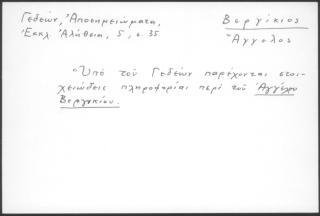 Γεδεών, Ἀποσημειώματα,
Ἐκκλ. Ἀλήθεια, 5, σ. 35
Βεργίκιος
Ἄγγελος
Ὑπό τοῦ Γεδεών παρέχονται στοι-
χειώδεις πληροφορίαι περί τοῦ Ἀγγέλου
Βεργικίου.